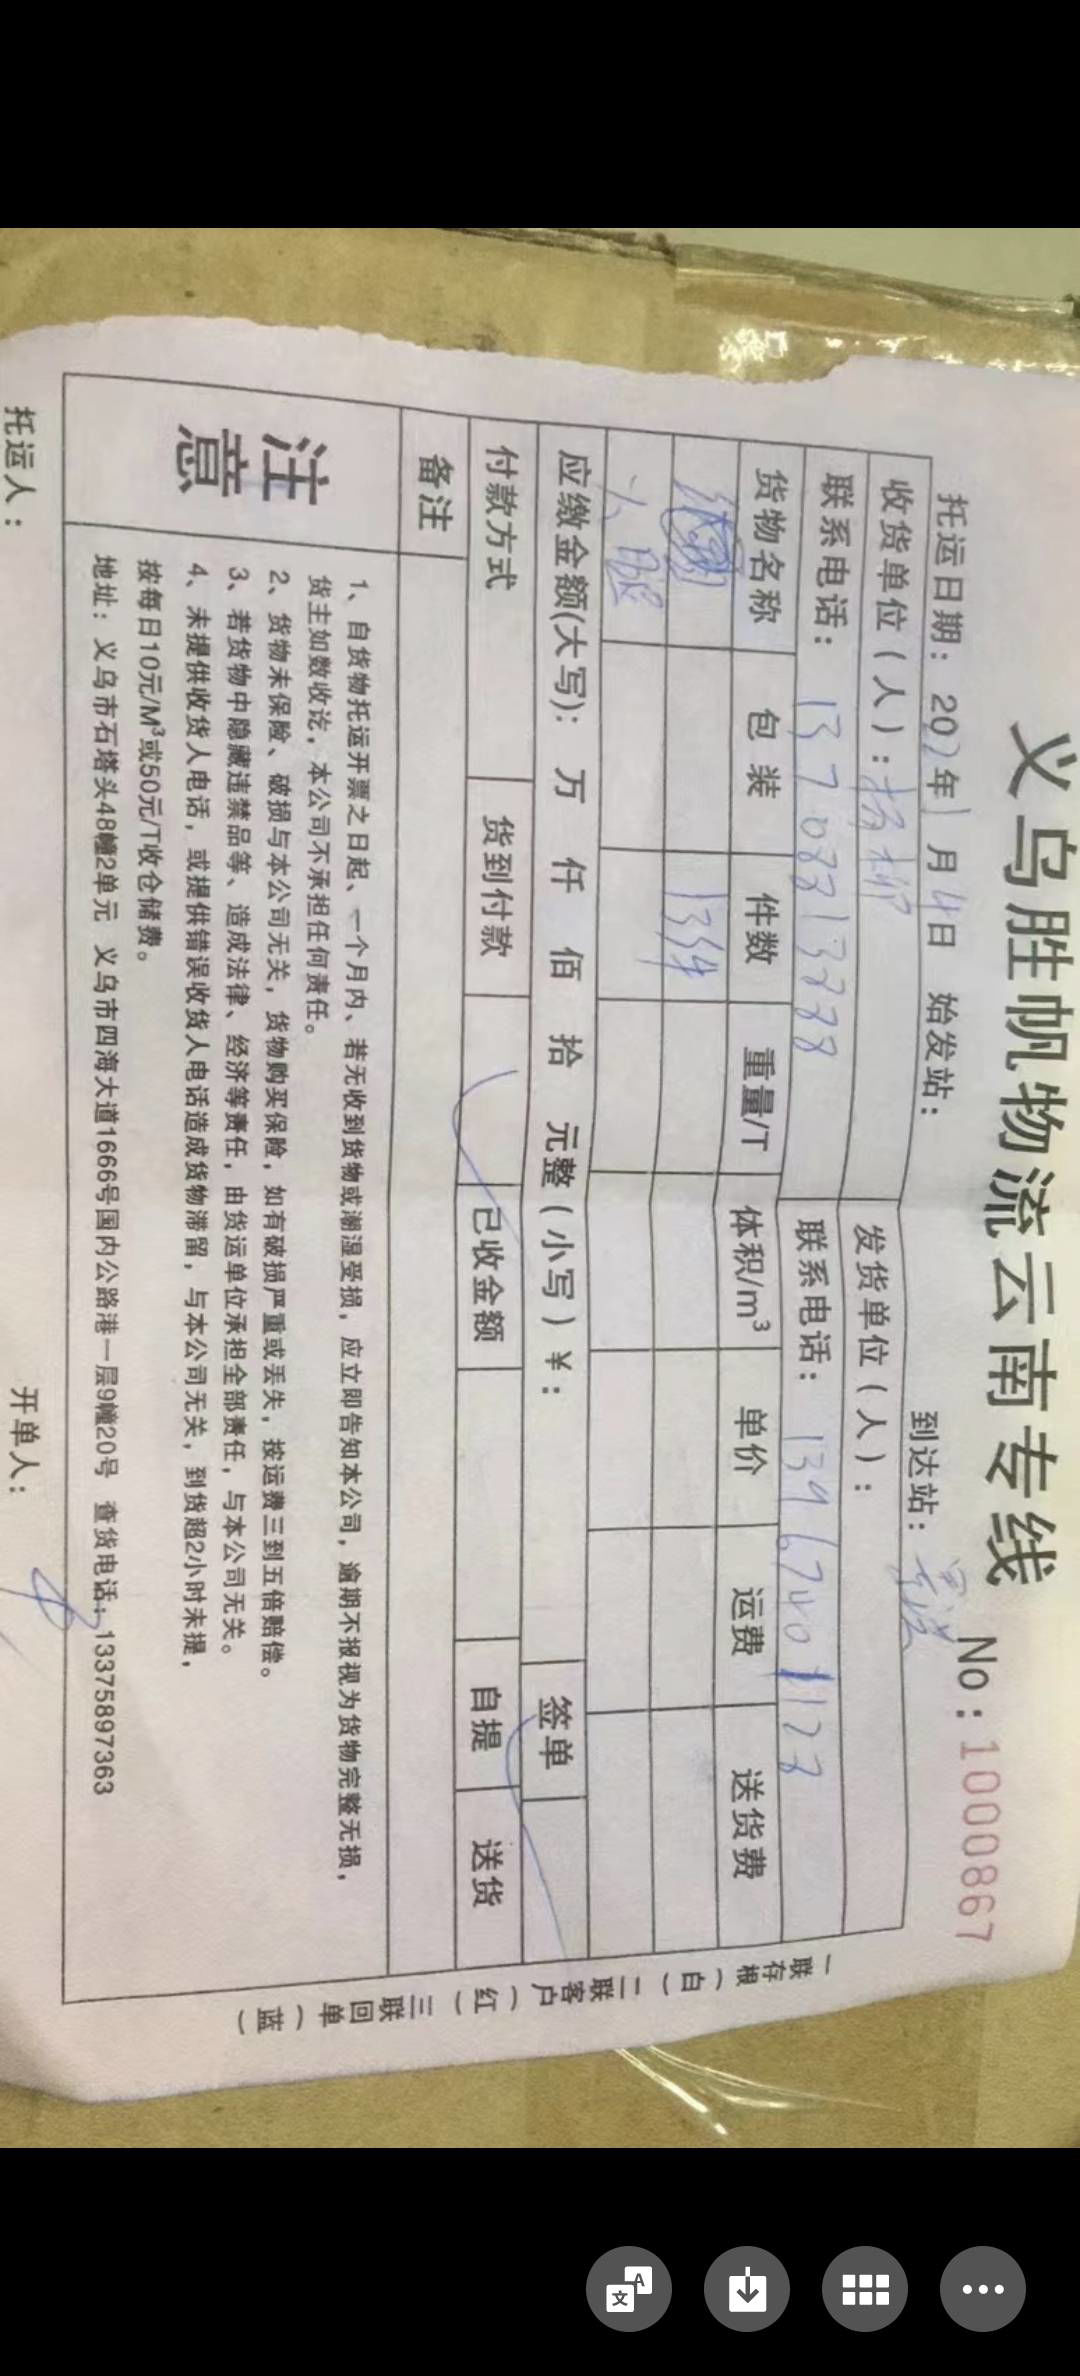 义乌胜帆物流云南专线
No：1000867
托运日期：2022年1月4日 始发站： 到达站：
收货单位（人）：杨柳 发货单位（人）：
联系电话：13708813888 联系电话：13967401128
货物名称 包装 件数 重量/T 体积/m³ 单价 运费 送货费
13件
应缴金额(大写)： 万 仟 佰 拾 元整（小写）¥： 签单
付款方式 货到付款 已收金额 自提 送货
备注
注意
1、自货物托运开票之日起、一个月内、若无收到货物或潮湿受损，应立即告知本公司，逾期不报视为货物完整无损，
货主如数收讫，本公司不承担任何责任。
2、货物未保险、破损与本公司无关，货物购买保险，如有破损严重或丢失，按运费三到五倍赔偿。
3、若货物中隐藏违禁品等、造成法律、经济等责任，由货运单位承担全部责任，与本公司无关。
4、未提供收货人电话，或提供错误收货人电话造成货物滞留，与本公司无关，到货超2小时未提，
按每日10元/M³或50元/T收仓储费。
地址：义乌市石塔头48幢2单元 义乌市四海大道1666号国内公路港一层9幢20号 查货电话：13375897363
托运人： 开单人：
一联存根（白）二联客户（红）三联回单（蓝）